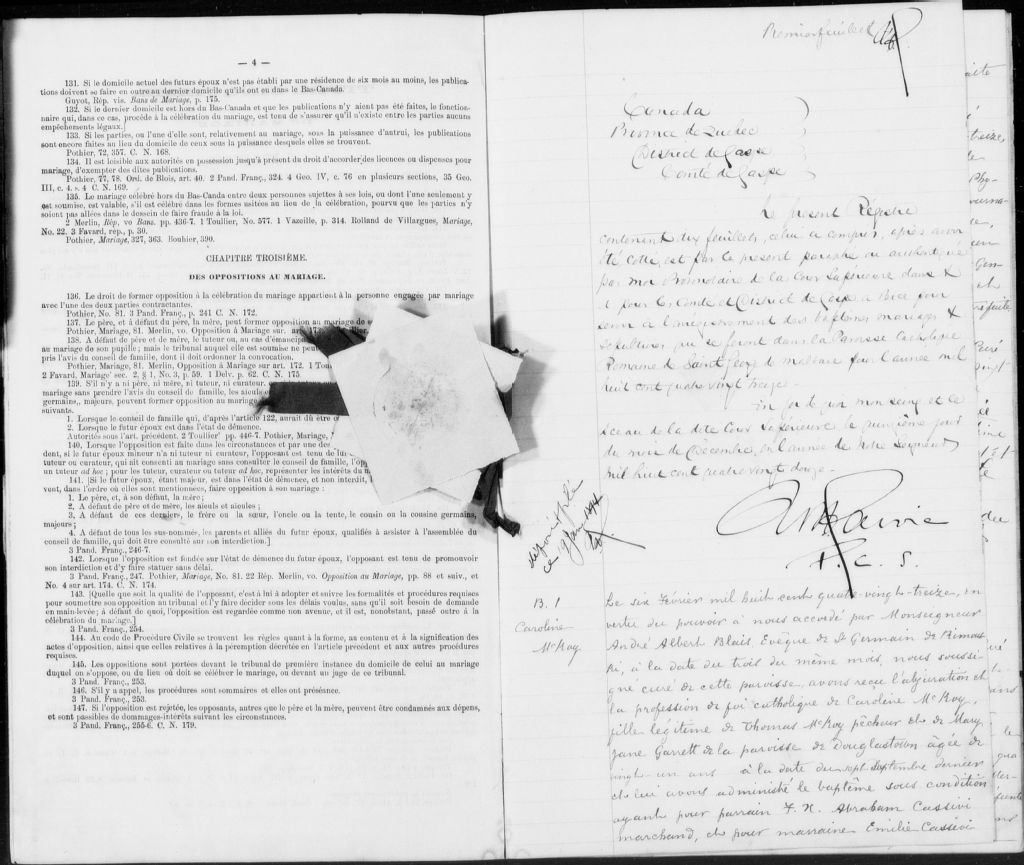 — 4 —
131. Si le domicile actuel des futurs époux n'est pas établi par une résidence de six mois au moins, les publica-
tions doivent se faire en outre au dernier domicile qu'ils ont eu dans le Bas-Canada.
Guyot, Rép. vis. Bans de Mariage, p. 175.
132. Si le dernier domicile est hors du Bas-Canada et que les publications n'y aient pas été faites, le fonction-
naire qui, dans ce cas, procède à la célébration du mariage, est tenu de s'assurer qu'il n'existe entre les parties aucuns
empêchements légaux.
133. Si les parties, ou l'une d'elle sont, relativement au mariage, sous la puissance d'autrui, les publications
sont encore faites au lieu du domicile de ceux sous la puissance desquels elles se trouvent.
Pothier, 72, 357. C. N. 168.
134. Il est loisible aux autorités en possession jusqu'à présent du droit d'accorder des licences ou dispenses pour
mariage, d'exempter des dites publications.
Pothier, 77, 78. Ord. de Blois, art. 40. 2 Pand. Franç., 324. 4 Geo. IV, c. 76 en plusieurs sections, 35 Geo.
III, c. 4. s. 4 C. N. 169.
135. Le mariage célébré hors du Bas-Canda entre deux personnes sujettes à ses lois, ou dont l'une seulement y
est soumise, est valable, s'il est célébré dans les formes usitées au lieu de la célébration, pourvu que les parties n'y
soient pas allées dans le dessein de faire fraude à la loi.
2 Merlin, Rép, vo Bans. pp. 436-7. 1 Toullier, No. 577. 1 Vazeille, p. 314. Rolland de Villargues, Mariage,
No. 22. 3 Favard, rép., p. 30.
Pothier, Mariage, 327, 363. Bouhier, 390.
CHAPITRE TROISIÈME.
DES OPPOSITIONS AU MARIAGE.
136. Le droit de former opposition à la célébration du mariage appartient à la personne engagée par mariage
avec l'une des deux parties contractantes.
Pothier, No. 81. 3 Pand. Franç., p. 241 C. N. 172.
137. Le père, et à défaut du père, la mère, peut former opposition au mariage de
Pothier, Mariage, 81. Merlin, vo. Opposition à Mariage sur. art
138. A défaut de père et de mère, le tuteur ou, au cas d'émancip
au mariage de son pupille; mais le tribunal auquel elle est soumise ne peut
pris l'avis du conseil de famille, dont il doit ordonner la convocation.
Pothier, Mariage, 81. Merlin, Opposition à Mariage sur art. 172. 1 Toul
2 Favard, Mariage' sec. 2, § 1, No. 3, p. 59. 1 Delv. p. 62. C. N. 175.
139. S'il n'y a ni père, ni mère, ni tuteur, ni curateur,
mariage sans prendre l'avis du conseil de famille, les aïeuls
germains, majeurs, peuvent former opposition au mariag
suivants.
1. Lorsque le conseil de famille qui, d'après l'article 122, aurait dû être
2. Lorsque le futur époux est dans l'état de démence.
Autorités sous l'art. précédent. 2 Toullier' pp. 446-7. Pothier, Mariage,
140. Lorsque l'opposition est faite dans les circonstances et par une des
dent, si le futur époux mineur n'a ni tuteur ni curateur, l'opposant est tenu de lui
tuteur ou curateur, qui ait consenti au mariage sans consulter le conseil de famille, l'op
un tuteur ad hoc; pour les tuteur, curateur ou tuteur ad hoc, représenter les intérêts du
141. [Si le futur époux, étant majeur, est dans l'état de démence, et non interdit,
vent, dans l'ordre où elles sont mentionnées, faire opposition à son mariage :
1. Le père, et, à son défaut, la mère;
2. A défaut de père et de mère, les aïeuls et aïeules;
3. A défaut de ces derniers, le frère ou la sœur, l'oncle ou la tente, le cousin ou la cousine germains,
majeurs;
4. A défaut de tous les sus-nommés, les parents et alliés du futur époux, qualifiés à assister à l'assemblée du
conseil de famille, qui doit être consulté sur son interdiction.]
3 Pand. Franç., 246-7.
142. Lorsque l'opposition est fondée sur l'état de démence du futur époux, l'opposant est tenu de promouvoir
son interdiction et d'y faire statuer sans délai.
3 Pand. Franç., 247. Pothier, Mariage, No. 81. 22 Rép. Merlin, vo. Opposition au Mariage, pp. 88 et suiv., et
No. 4 sur art. 174. C. N. 174.
143. [Quelle que soit la qualité de l'opposant, c'est à lui à adopter et suivre les formalités et procédures requises
pour soumettre son opposition au tribunal et l'y faire décider sous les délais voulus, sans qu'il soit besoin de demande
en main-levée; à défaut de quoi, l'opposition est regardée comme non avenue, et il est, nonobstant, passé outre à la
célébration du mariage.]
3 Pand. Franç., 254.
144. Au code de Procédure Civile se trouvent les règles quant à la forme, au contenu et à la signification des
actes d'opposition, ainsi que celles relatives à la péremption décrétée en l'article précédent et aux autres procédures
requises.
145. Les oppositions sont portées devant le tribunal de première instance du domicile de celui au mariage
duquel on s'oppose, ou du lieu où doit se célébrer le mariage, ou devant un juge de ce tribunal.
3 Pand. Franç., 253.
146. S'il y a appel, les procédures sont sommaires et elles ont préséance.
3 Pand. Franç., 253.
147. Si l'opposition est rejetée, les opposants, autres que le père et la mère, peuvent être condamnés aux dépens,
et sont passibles de dommages-intérêts suivant les circonstances.
3 Pand. Franç., 255-6. C. N. 179.
Premier feuillet
Canada
Province de Quebec
District de Gaspé
Comté de Gaspé
Le présent Régistre
contenant dix feuillets, celui ci compris, après avoir
été cotté, est par le présent paraphé ou authentiqué
par moi Protonotaire de la Cour Supérieure dans &
pour le Comté et District de Gaspé à Percé pour
servir à l'enrégistrement des baptêmes mariages &
sépultures qui se feront dans la Paroisse Catholique
Romaine de Saint George de Malbaie pour l'année mil
huit cent quatre vingt treize.
En foi de quoi mon seing et le
sceau de la dite Cour Supérieure le quinzième jour
du mois de Décembre, en l'année de Notre Seigneur
mil huit cent quatre vingt douze.
P. C. S.
B. 1
Caroline
McKoy
Le six Février mil huit cent quatre-vingt-treize, en
vertu du pouvoir à nous accordé par Monseigneur
André Albert Blais Evêque de St Germain de Rimous
ki, à la date du trois du même mois, nous soussi-
gné curé de cette paroisse, avons reçu l'abjuration et
la profession de foi catholique de Caroline McKoy,
fille légitime de Thomas McKoy pêcheur et de Mary
Jane Garrett de la paroisse de Douglastown âgée de
vingt-un ans à la date du sept Septembre dernier
et lui avons administré le baptême sous condition
ayant pour parrain F. X. Abraham Cassivi
marchand, et pour marraine Emilie Cassivi